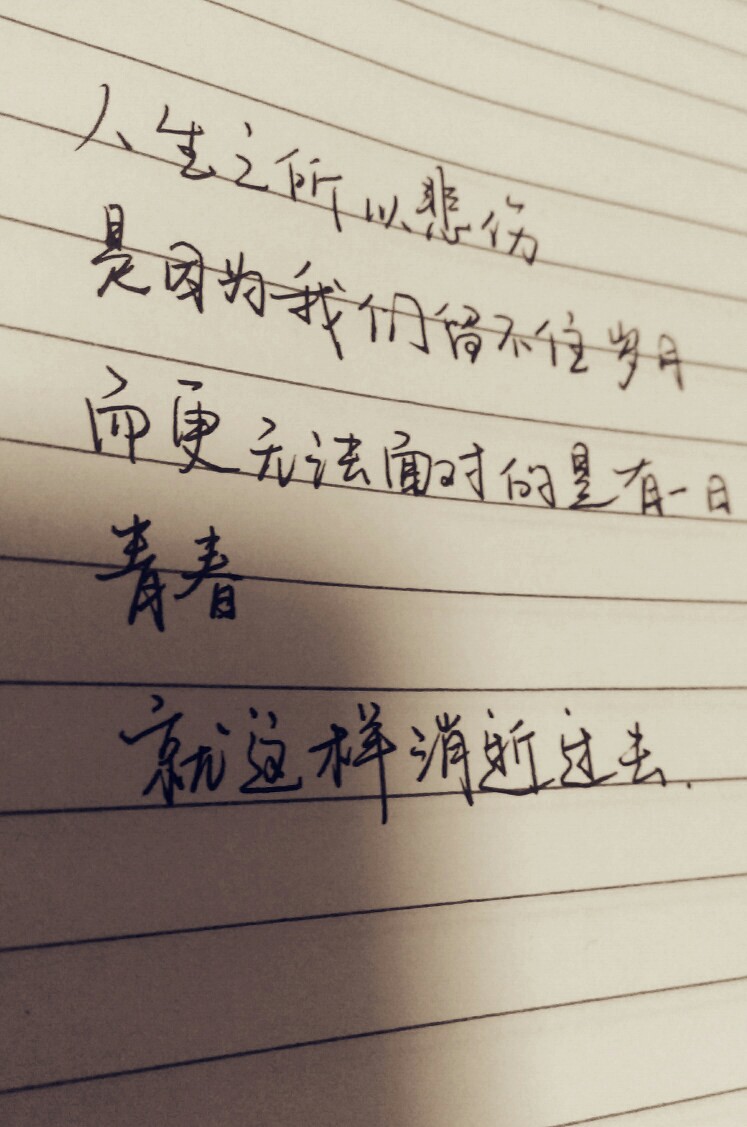 人生之所以悲伤
是因为我们留不住岁月
而更无法面对的是有一日
青春
就这样消逝过去.